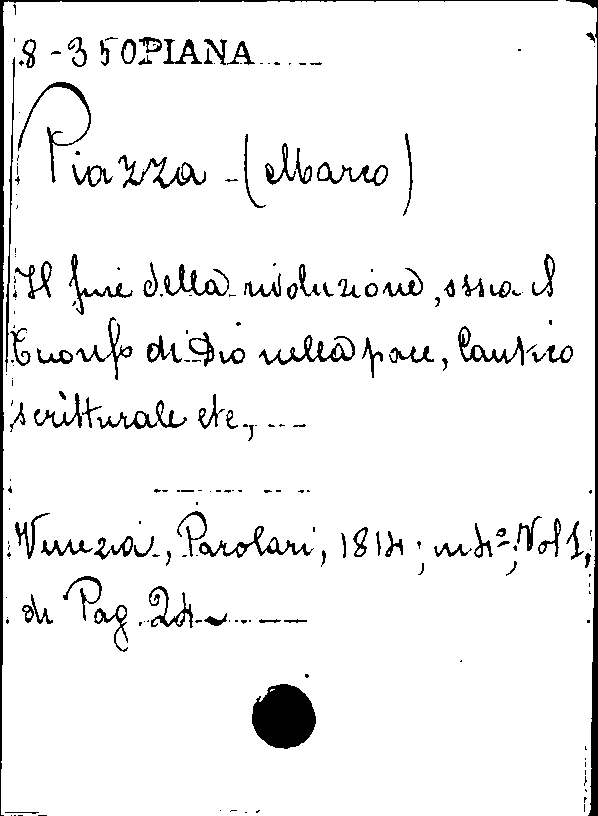 8-350PIANA
Piazza (Marco)
Il fine della rivoluzione, ossia il
Trionfo di Dio nella pace, Cantico
scritturale etc,
Venezia, Parolari, 1814; in 4º; Vol 1,
di Pag. 24